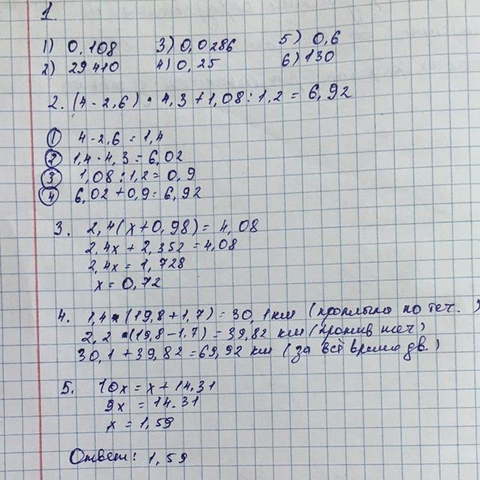 1.
1) 0,108 3) 0,0286 5) 0,6
2) 29410 4) 0,25 6) 130
2. (4-2,6) • 4,3 + 1,08 : 1,2 = 6,92
① 4-2,6 = 1,4
② 1,4 • 4,3 = 6,02
③ 1,08 : 1,2 = 0,9
④ 6,02 + 0,9 = 6,92
3. 2,4(x+0,98) = 4,08
2,4x + 2,352 = 4,08
2,4x = 1,728
x = 0,72
4. 1,4 • (19,8 + 1,7) = 30,1 км (проплыла по теч.)
2,2 • (19,8 - 1,7) = 39,82 км (против теч)
30,1 + 39,82 = 69,92 км (за всё время дв.)
5. 10x = x + 14.31
9x = 14.31
x = 1,59
Ответ: 1,59